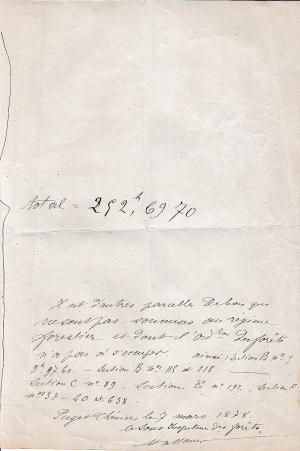 total = 292,h 69 70
Il est d'autres parcelle de bois qui
ne sont pas soumises au régime
forestier et dont l'ad^tion des forêts
n'a pas à s'occuper ainsi, Section B, n°
97 60. - Section B n°s 115 & 118
Section C n° 89, Section n° 192, Section F
n°s 37 - 40 & 658.
Puget Théniers le 7 mars 1878.
Le Sous Inspecteur des forêts,